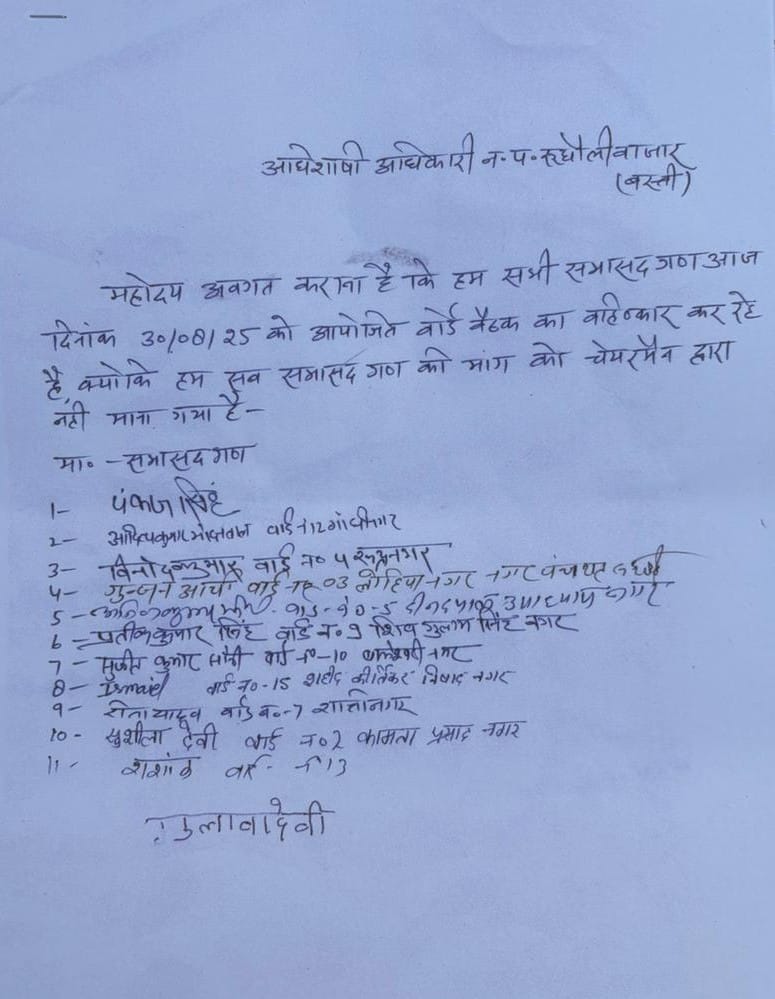 अधिशाषी अधिकारी न॰प॰रूधौलीबाजार
(बस्ती)
महोदय अवगत कराना है कि हम सभी सभासदगण आज
दिनांक 30/08/25 को आयोजित बोर्ड बैठक का बहिष्कार कर रहे
है, क्योकि हम सब सभासद गण की मांग को चेयरमैन द्वारा
नही माना गया है-
मा॰ - सभासदगण
1- पंकज सिंह
2- आदित्यकुमार वार्ड न॰12 गांधीनगर
3- विनोदकुमार वार्ड न॰ 4
4- गुन्जन आर्या वार्ड न॰ 03 लोहियानगर नगर पंचायत
5- वार्ड न॰-5 दीनदयाल उपाध्याय नगर
6- प्रतीककुमार सिंह वार्ड न॰ 9 शिव गुलाम सिंह नगर
7- सुजीत कुमार सोनी वार्ड न॰-10 नगर
8- Ismail वार्ड न॰-15 शहीद निषाद नगर
9- यादव वार्ड न॰-7 शान्तीनगर
10- सुशीला देवी वार्ड न॰2 कामता प्रसाद नगर
11- शशांक वार्ड- न॰13
गुलाबादेवी